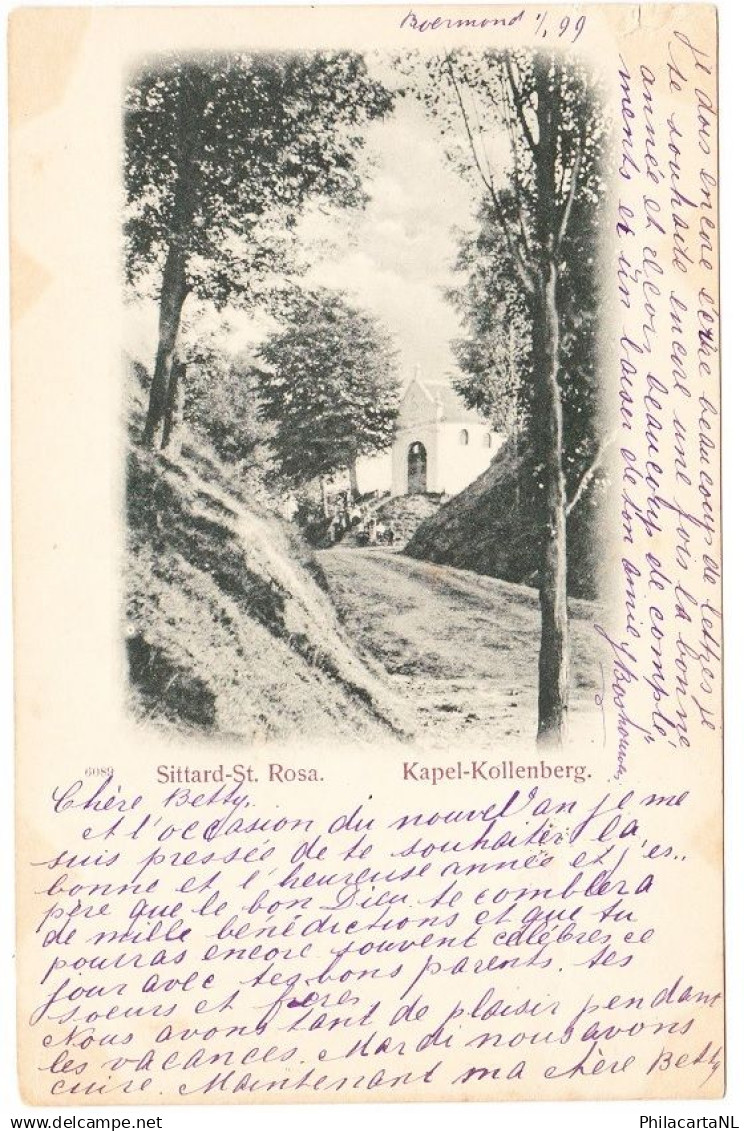 Roermond 1/1 99
6089 Sittard-St. Rosa. Kapel-Kollenberg.
Chère Betty,
A l'occasion du nouvel'an je me
suis pressée de te souhaiter la
bonne et l'heureuse année et j'es..
père que le bon Dieu te comblera
de mille bénédictions et que tu
pourras encore souvent célébres ce
jour avec tes bons parents. tes
soeurs et frères
Nous avons tant de plaisir pendant
les vacances. Mardi nous avons
cuire. Maintenant ma chère Betty
je dois encore écrire beaucoup de lettres je
te souhaite encore une fois la bonne
année et reçois beaucoup de complé
ments et un baiser de ton amie
PhilacartaNL